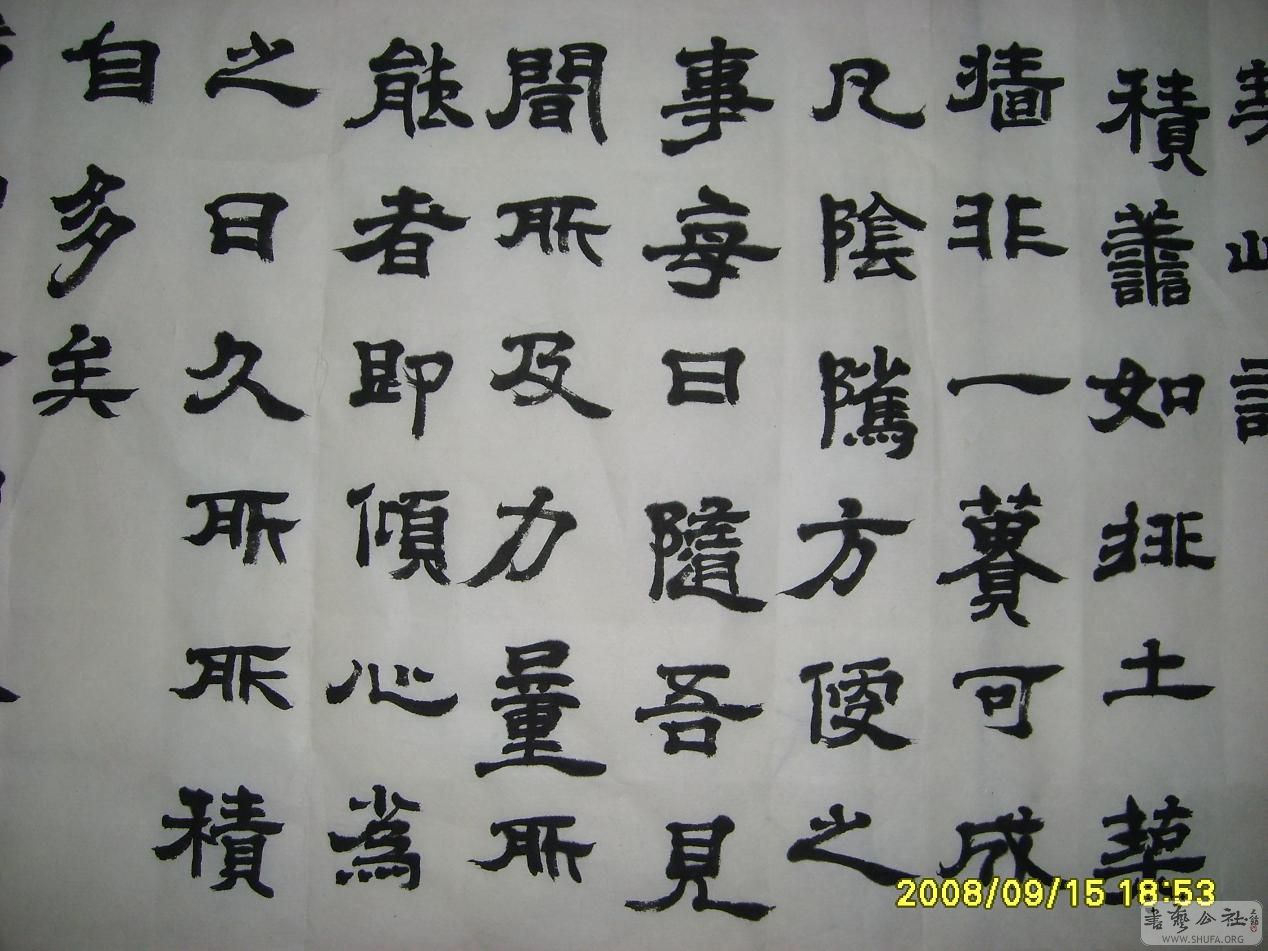 積善如排土築
牆非一蕢可成
凡陰隲方便之
事每日隨吾見
聞所及力量所
能者即傾心為
之日久所所積
自多矣
2008/09/15 18:53
書藝公社
WWW.SHUFA.ORG